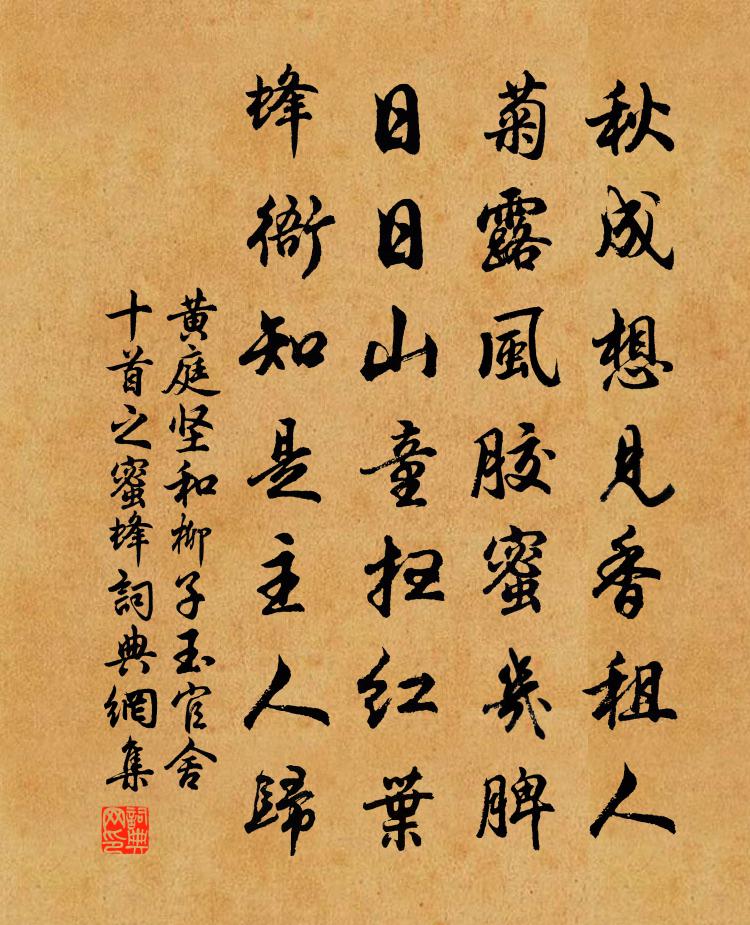 秋成想見香租人
菊露風胶蜜幾脾
日日山童扫红葉
蜂衙知是主人歸
黄庭坚和柳子玉官舍
十首之蜜蜂詞典網集
詞典
网印